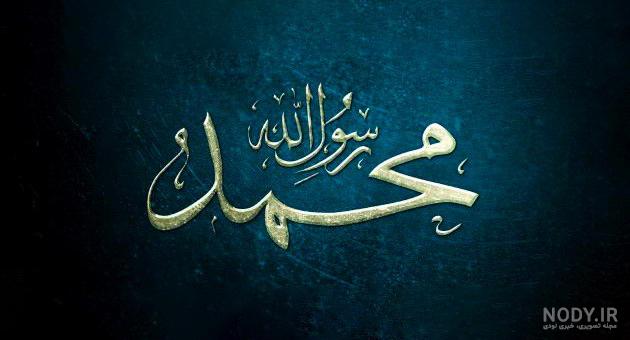 محمد
رسول الله
NODY.IR
مجله تصویری، خبری نودی